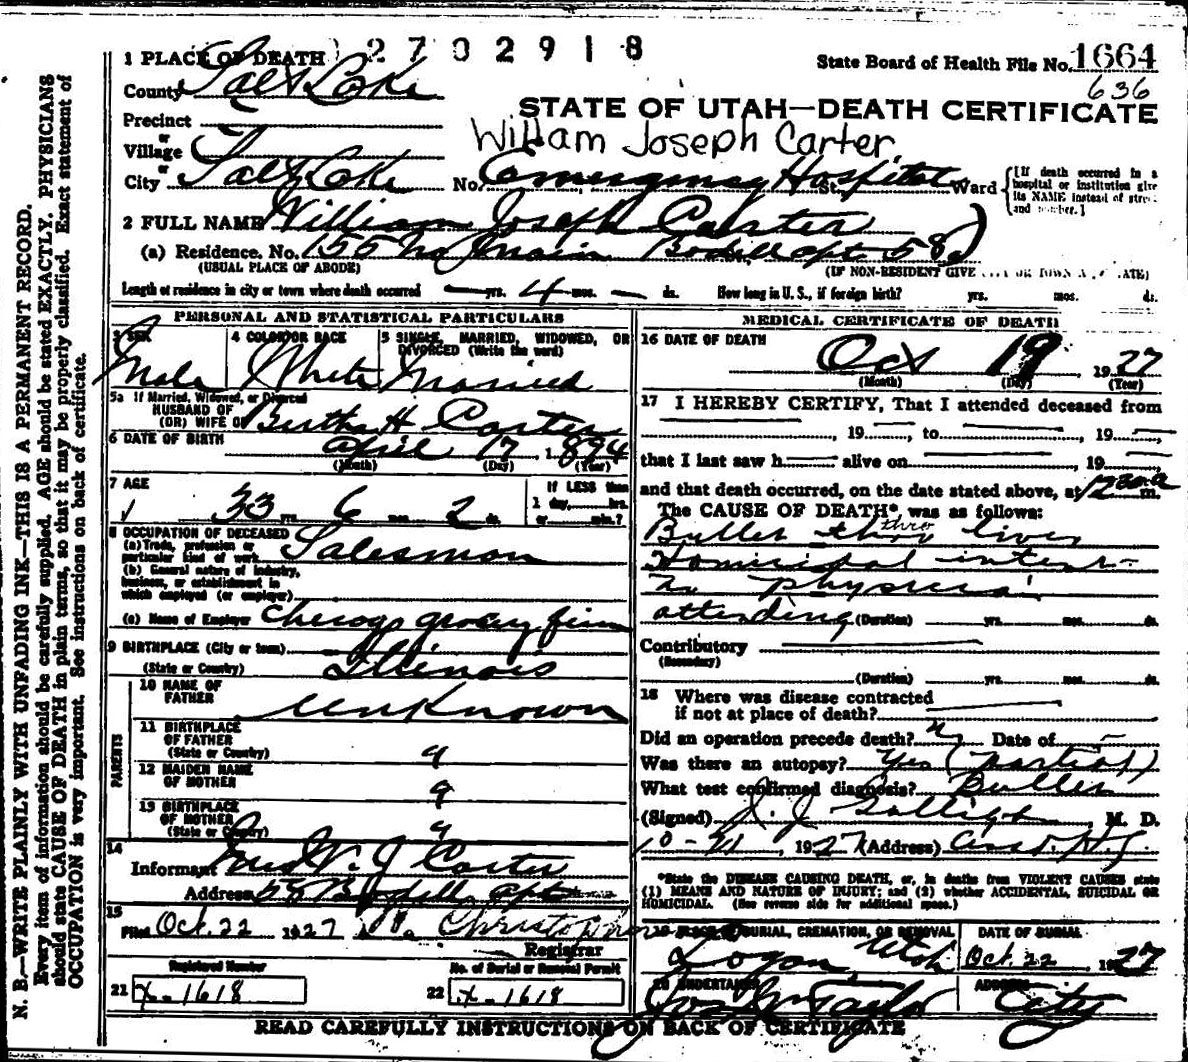 1 PLACE OF DEATH 2702918
State Board of Health File No. 1664
636
County Salt Lake
STATE OF UTAH—DEATH CERTIFICATE
Precinct
William Joseph Carter
or
Village
or
City Salt Lake No. Emergency Hospital St. Ward
[If death occurred in a hospital or institution give its NAME instead of street and number.]
2 FULL NAME William Joseph Carter
(a) Residence. No. 155 No Main Bodell apt 58
(USUAL PLACE OF ABODE) (IF NON-RESIDENT GIVE OR TOWN
Length of residence in city or town where death occurred — yrs. 4 mos. — ds. How long in U. S., if foreign birth? yrs. mos. ds.
PERSONAL AND STATISTICAL PARTICULARS
3 SEX
Male
4 COLOR OR RACE
White
5 SINGLE, MARRIED, WIDOWED, OR DIVORCED (Write the word)
Married
5a If Married, Widowed, or Divorced
HUSBAND OF
(OR) WIFE OF Bertha H Carter
6 DATE OF BIRTH April 17 1894
(Month) (Day) (Year)
7 AGE
33 yrs. 6 mos. 2 ds.
If LESS than
1 day, hrs.
or min.?
8 OCCUPATION OF DECEASED
(a) Trade, profession or
particular kind of work Salesman
(b) General nature of industry,
business, or establishment in
which employed (or employer)
(c) Name of Employer Chicago grocery firm
9 BIRTHPLACE (City or town)
(State or Country) Illinois
PARENTS
10 NAME OF
FATHER Unknown
11 BIRTHPLACE
OF FATHER
(State or Country)
12 MAIDEN NAME
OF MOTHER
13 BIRTHPLACE
OF MOTHER
(State or Country)
14
Informant Mrs W. J Carter
Address 58 Bodell apt
15
Filed Oct. 22 1927
Registrar
Registered Number
21 X-1618
No. of Burial or Removal Permit
22 X-1618
MEDICAL CERTIFICATE OF DEATH
16 DATE OF DEATH
Oct 19 1927
(Month) (Day) (Year)
17 I HEREBY CERTIFY, That I attended deceased from
, 19 , to , 19
that I last saw h alive on , 19
and that death occurred, on the date stated above, at 1230 a m.
The CAUSE OF DEATH*, was as follows:
thro
Bullet thro liver
Homicidal intent-
no physician
attending (Duration) yrs. mos. ds.
Contributory
(Secondary)
(Duration) yrs. mos. ds.
18 Where was disease contracted
if not at place of death?
Did an operation precede death? Date of
Was there an autopsy? Yes (partial)
What test confirmed diagnosis? Bullet
(Signed) J. J. Galligan, M. D.
10-21, 1927 (Address)
*State the DISEASE CAUSING DEATH, or, in deaths from VIOLENT CAUSES state
(1) MEANS AND NATURE OF INJURY; and (2) whether ACCIDENTAL, SUICIDAL OR
HOMICIDAL. (See reverse side for additional space.)
19 PLACE OF BURIAL, CREMATION, OR REMOVAL
Logan, Utah
DATE OF BURIAL
Oct. 22 1927
20 UNDERTAKER
Jos Wm Taylor
ADDRESS
City
READ CAREFULLY INSTRUCTIONS ON BACK OF CERTIFICATE
N. B.—WRITE PLAINLY WITH UNFADING INK—THIS IS A PERMANENT RECORD.
Every item of information should be carefully supplied. AGE should be stated EXACTLY. PHYSICIANS
should state CAUSE OF DEATH in plain terms, so that it may be properly classified. Exact statement of
OCCUPATION is very important. See instructions on back of certificate.